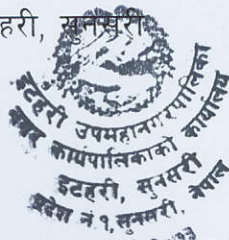 हरी, सुनसरी
इटहरी उपमहानगरपालिका
नगर कार्यपालिकाको कार्यालय
इटहरी, सुनसरी
प्रदेश नं १, सुनसरी, नेपाल